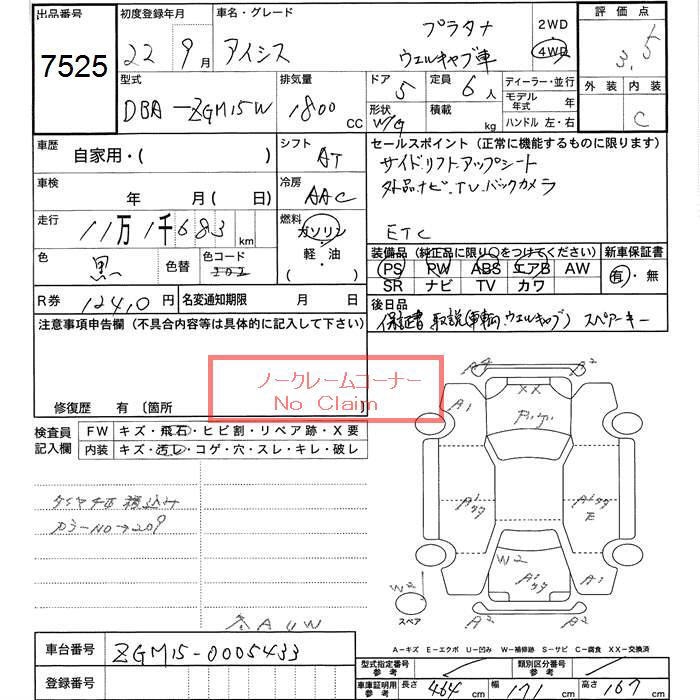 出品番号 初度登録年月 車名・グレード 評価点
7525 22年 9月 アイシス プラタナ ウェルキャブ車 2WD 4WD 3.5
型式 排気量 ドア 定員 ディーラー・並行 外装 内装
DBA-ZGM15W 1800 CC 5 6人 モデル年式 年 C
形状 W/G 積載 kg ハンドル 左・右
車歴 自家用・( ) シフト AT セールスポイント (正常に機能するものに限ります)
サイドリフトアップシート
車検 年 月(日) 冷房 AAC 外品ナビ.TV.バックカメラ
走行 11万1千683 km 燃料 ガソリン ETC
色 黒 色替 色コード 202 軽・油 ( )
装備品 (純正品に限り○をつけてください) 新車保証書
PS PW ABS エアB AW 有・無
SR ナビ TV カワ
R券 12410円 名変通知期限 月 日 後日品
保証書 取説(車輌,ウェルキャブ) スペアーキー
注意事項申告欄 (不具合内容等は具体的に記入して下さい)
ノークレームコーナー
No Claim
修復歴 有 〔箇所 〕
検査員記入欄 FW キズ・飛石・ヒビ割・リペア跡・X要
内装 キズ・汚レ・コゲ・穴・スレ・キレ・破レ
カラーNO→209
A2 A2
A1 XX
A1 A1
W2
W2 A1
スペア
A2 A2
A-キズ E-エクボ U-凹み W-補修跡 S-サビ C-腐食 XX-交換済
車台番号 ZGM15-0005433
登録番号
型式指定番号 参考 類別区分番号 参考
車庫証明用 参考 長さ 464 cm 幅 171 cm 高さ 167 cm